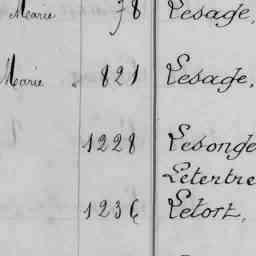 Marie 78 Lesage,
Marie 821 Lesage,
1228 Lesonge
Letertre
1236 Letort,